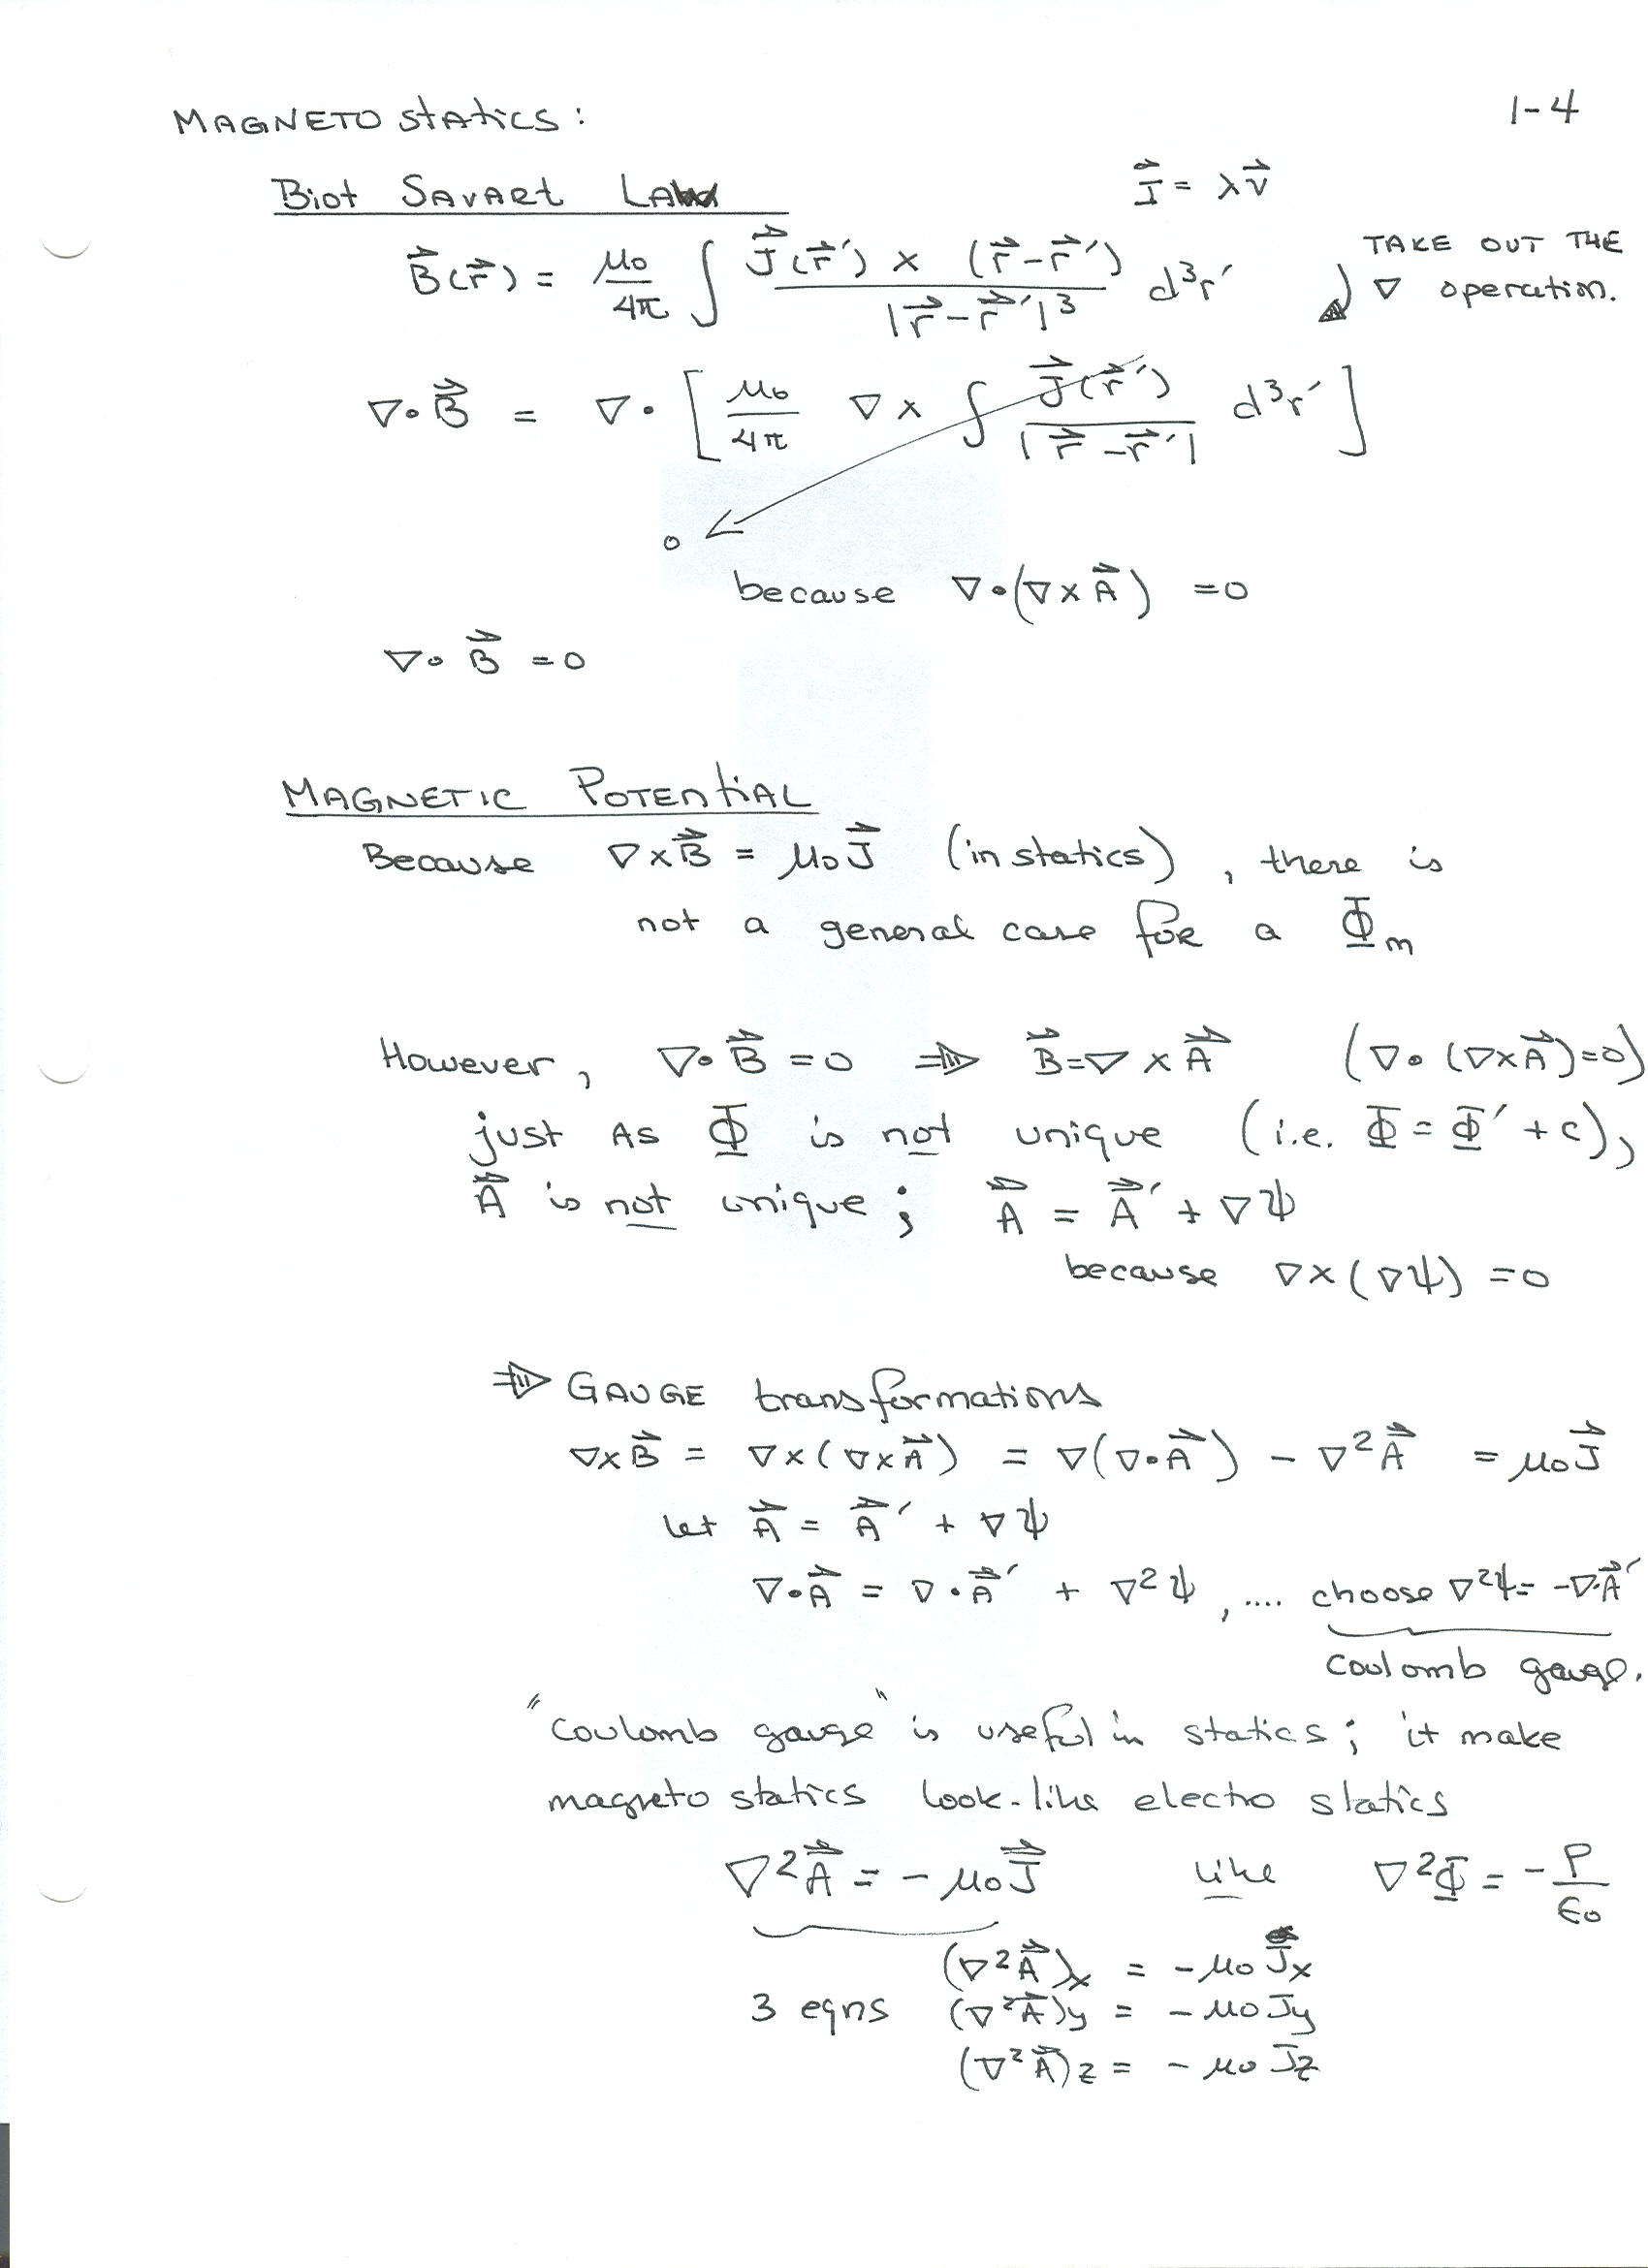 MAGNETO STATICS: 1-4
Biot SAVART LAW I⃗ = λv⃗
B⃗(r⃗) = μ₀/4π ∫ J⃗(r⃗′) × (r⃗-r⃗′) / |r⃗-r⃗′|³ d³r′ TAKE OUT THE
∇ operation.
∇·B⃗ = ∇·[ μ₀/4π ∇× ∫ J⃗(r⃗′) / |r⃗-r⃗′| d³r′ ]
0
because ∇·(∇×A⃗) =0
∇·B⃗ =0
MAGNETIC POTENTIAL
Because ∇×B⃗ = μ₀J⃗ (in statics), there is
not a general case for a Φm
However, ∇·B⃗ =0 ⇒ B⃗=∇×A⃗ (∇·(∇×A⃗)=0)
just AS Φ is not unique (i.e. Φ = Φ′ + c),
A⃗ is not unique; A⃗ = A⃗′ + ∇ψ
because ∇×(∇ψ) =0
⇒ GAUGE transformations
∇×B⃗ = ∇×(∇×A⃗) = ∇(∇·A⃗) - ∇²A⃗ = μ₀J⃗
let A⃗ = A⃗′ + ∇ψ
∇·A⃗ = ∇·A⃗′ + ∇²ψ, .... choose ∇²ψ= -∇·A⃗′
coulomb gauge.
"coulomb gauge" is useful in statics; it make
magneto statics look-like electro statics
∇²A⃗ = - μ₀J⃗ like ∇²Φ = - ρ/ε₀
(∇²A⃗)x = -μ₀Jx
3 eqns (∇²A⃗)y = -μ₀Jy
(∇²A⃗)z = -μ₀Jz